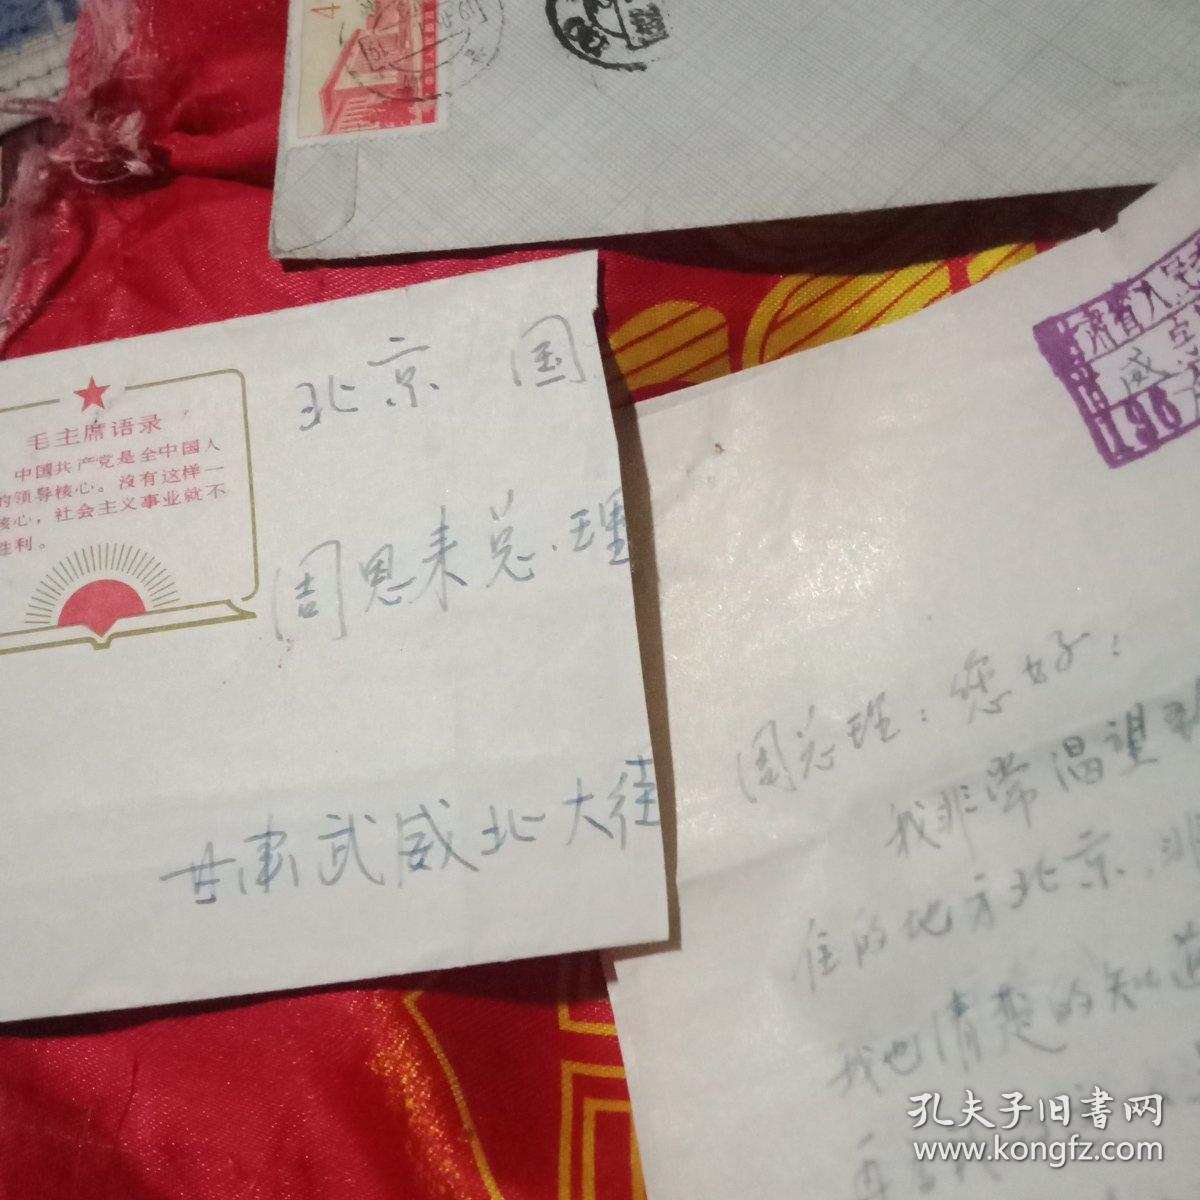 4
毛主席语录
中国共产党是全中国人
的领导核心。没有这样一
核心，社会主义事业就不
胜利。
北京 国
周恩来总理
甘肃武威北大街
肃省人民
威
196
周总理：您好！
我非常渴望
住的地方北京，非
我也清楚的知道
再
孔夫子旧书网
www.kongfz.com